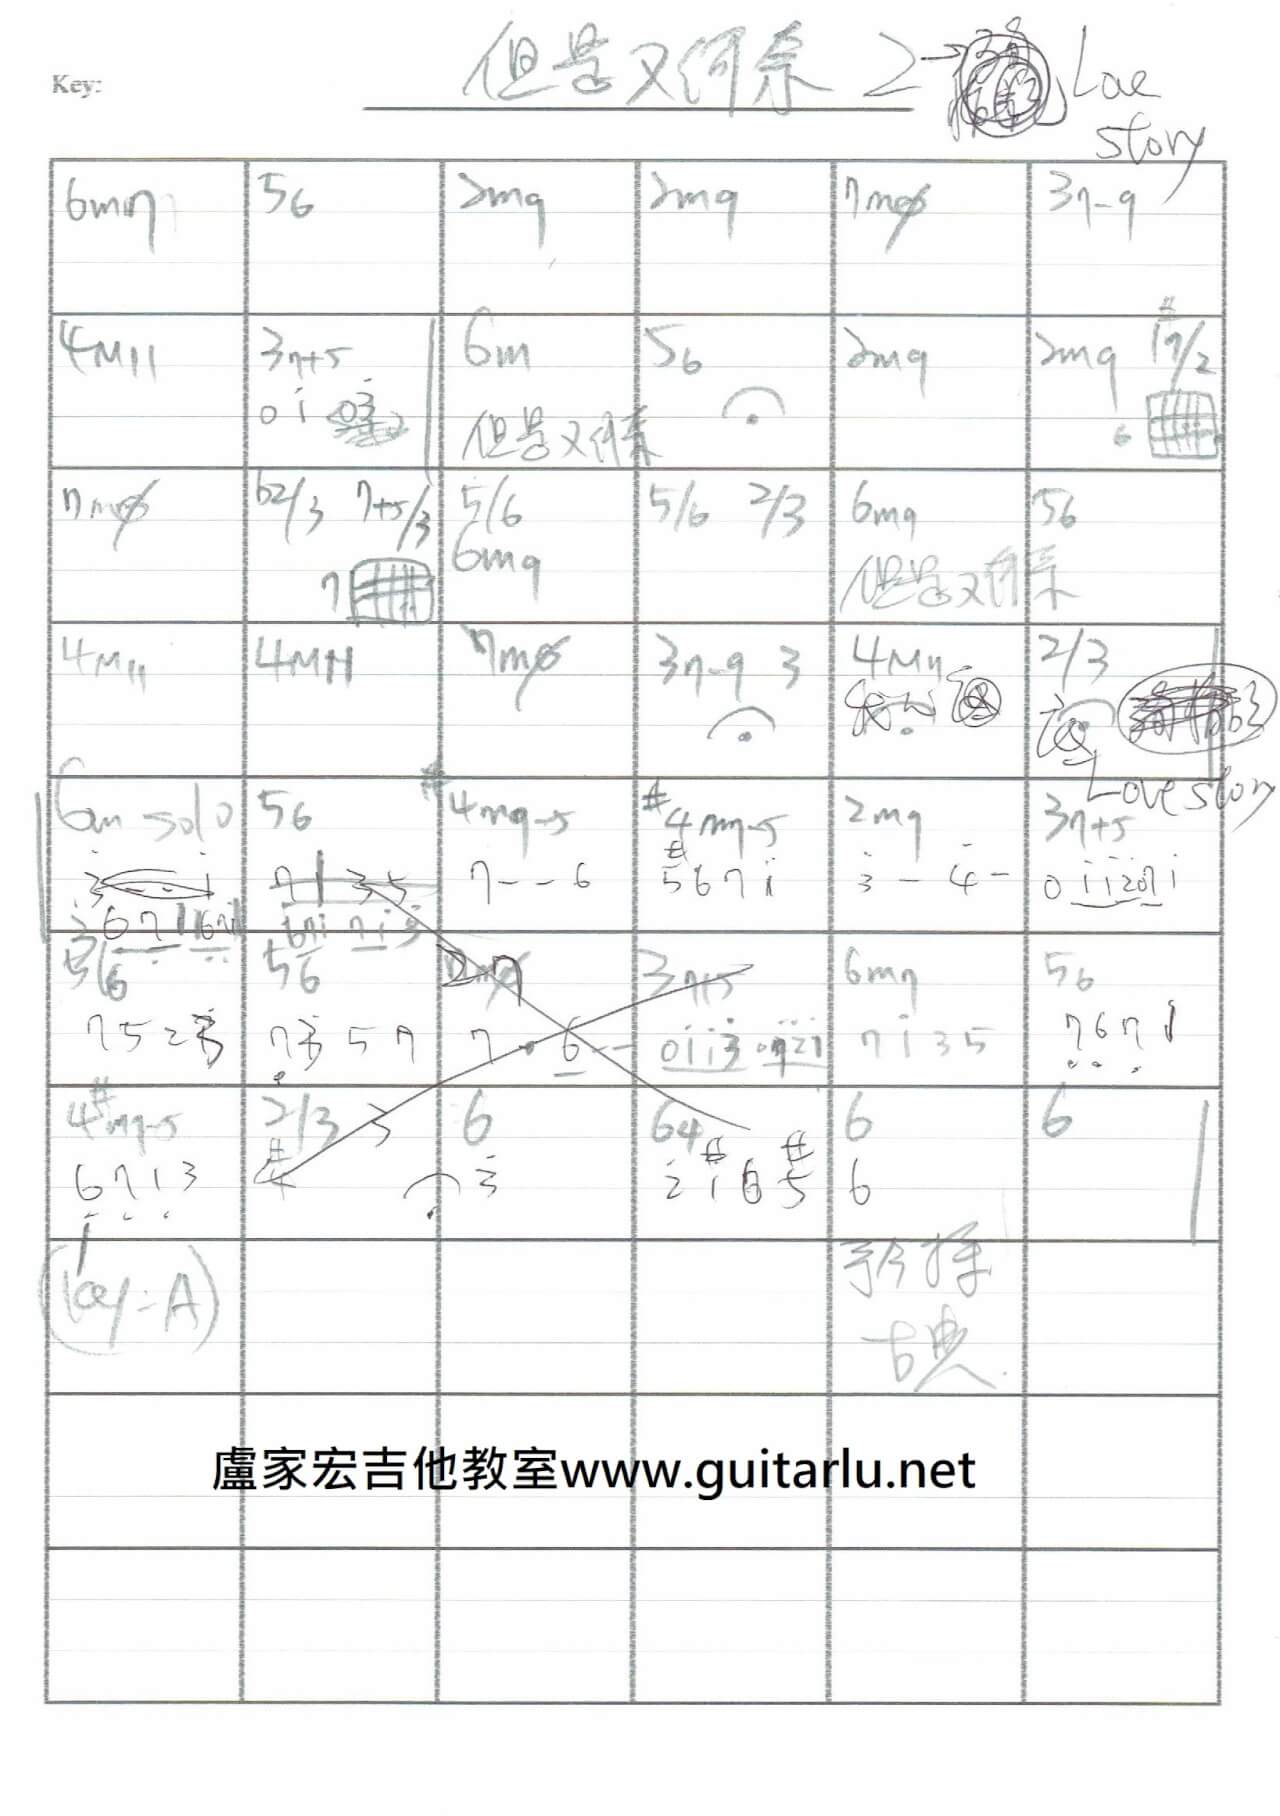 Key:
但是又何奈 2 → Love
story
6m7 56 2m9 2m9 7mø 37-9
4M11 37+5 6m 56 2m9 2m9 #17/2
0 i 但是又何奈 6
7mø b2/3 7+5/3 5/6 5/6 2/3 6m9 56
7 6m9 但是又何奈
4M11 4M11 7mø 37-9 3 4M11 2/3
Love story
6m solo 56 #4m9-5 #4m7-5 2m9 37+5
7 1 3 5 7 - - 6 #5 6 7 i 3 - 4 - 0 i i 2 0 7 i
5/6 56 27 37+5 6m7 56
7 5 2 3 7 3 5 7 7 . 6 - - 0 i i 3 0 7 2 1 7 i 3 5 7 6 7 1
4#m7-5 2/3 3 6 64 6 6
6 7 1 3 #4 3 2 #1 6 #5 6
(key=A)
古典
盧家宏吉他教室www.guitarlu.net